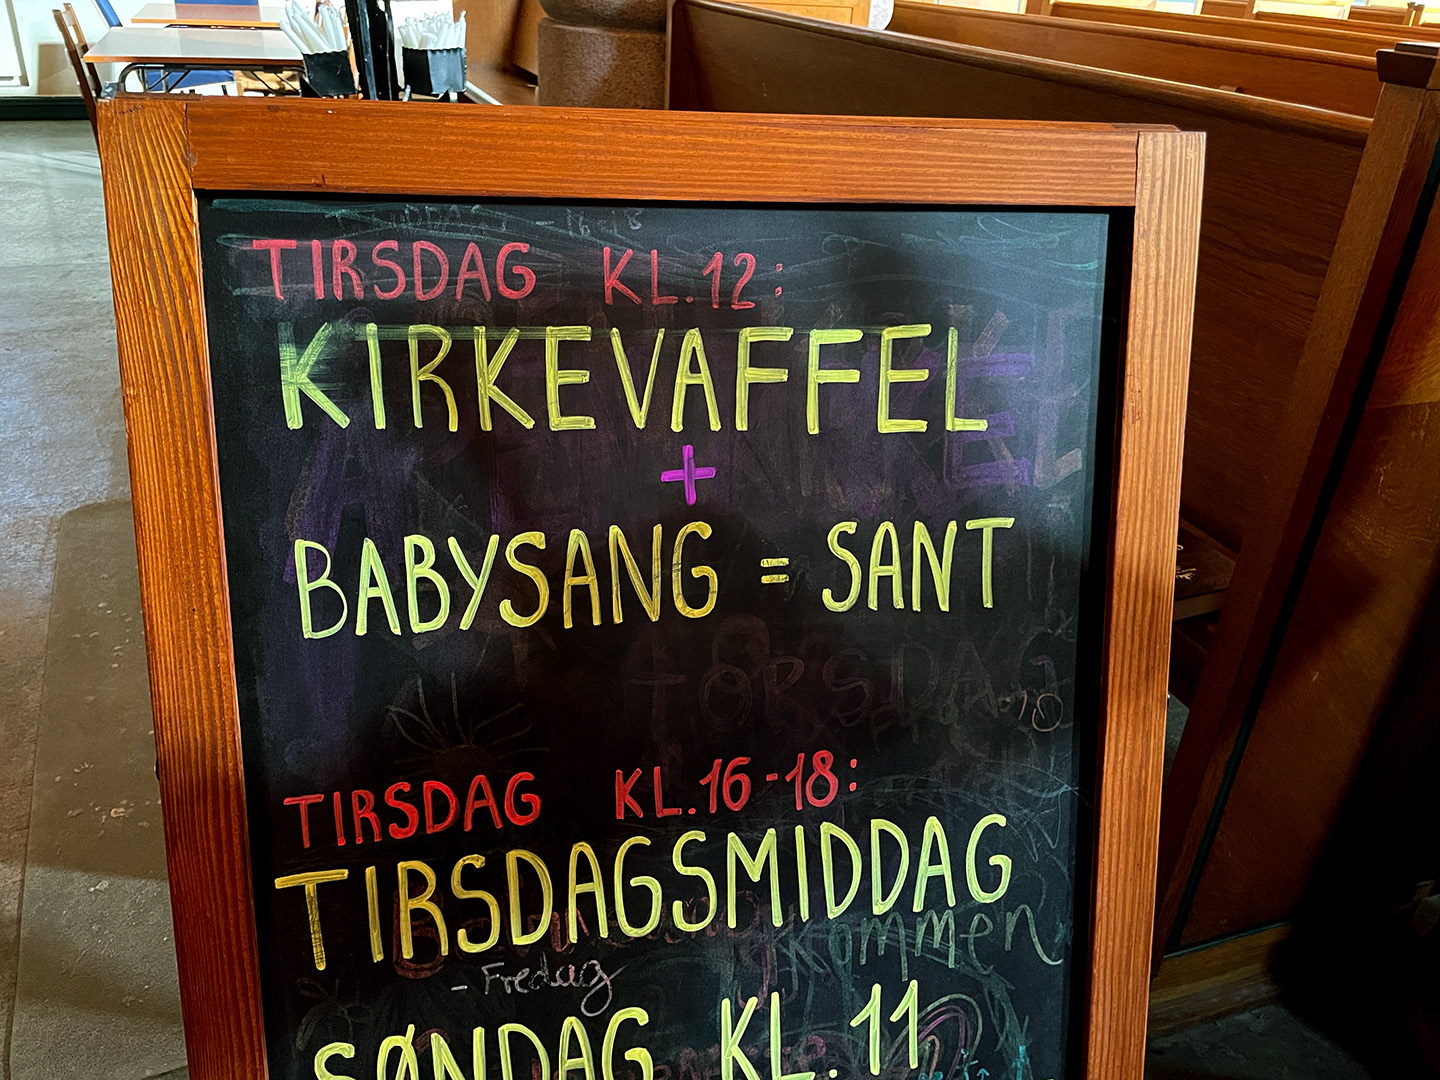 TIRSDAG KL.12:
KIRKEVAFFEL
+
BABYSANG = SANT
TORSDAG
TIRSDAG KL.16-18:
TIRSDAGSMIDDAG
- Fredag
SØNDAG KL.11